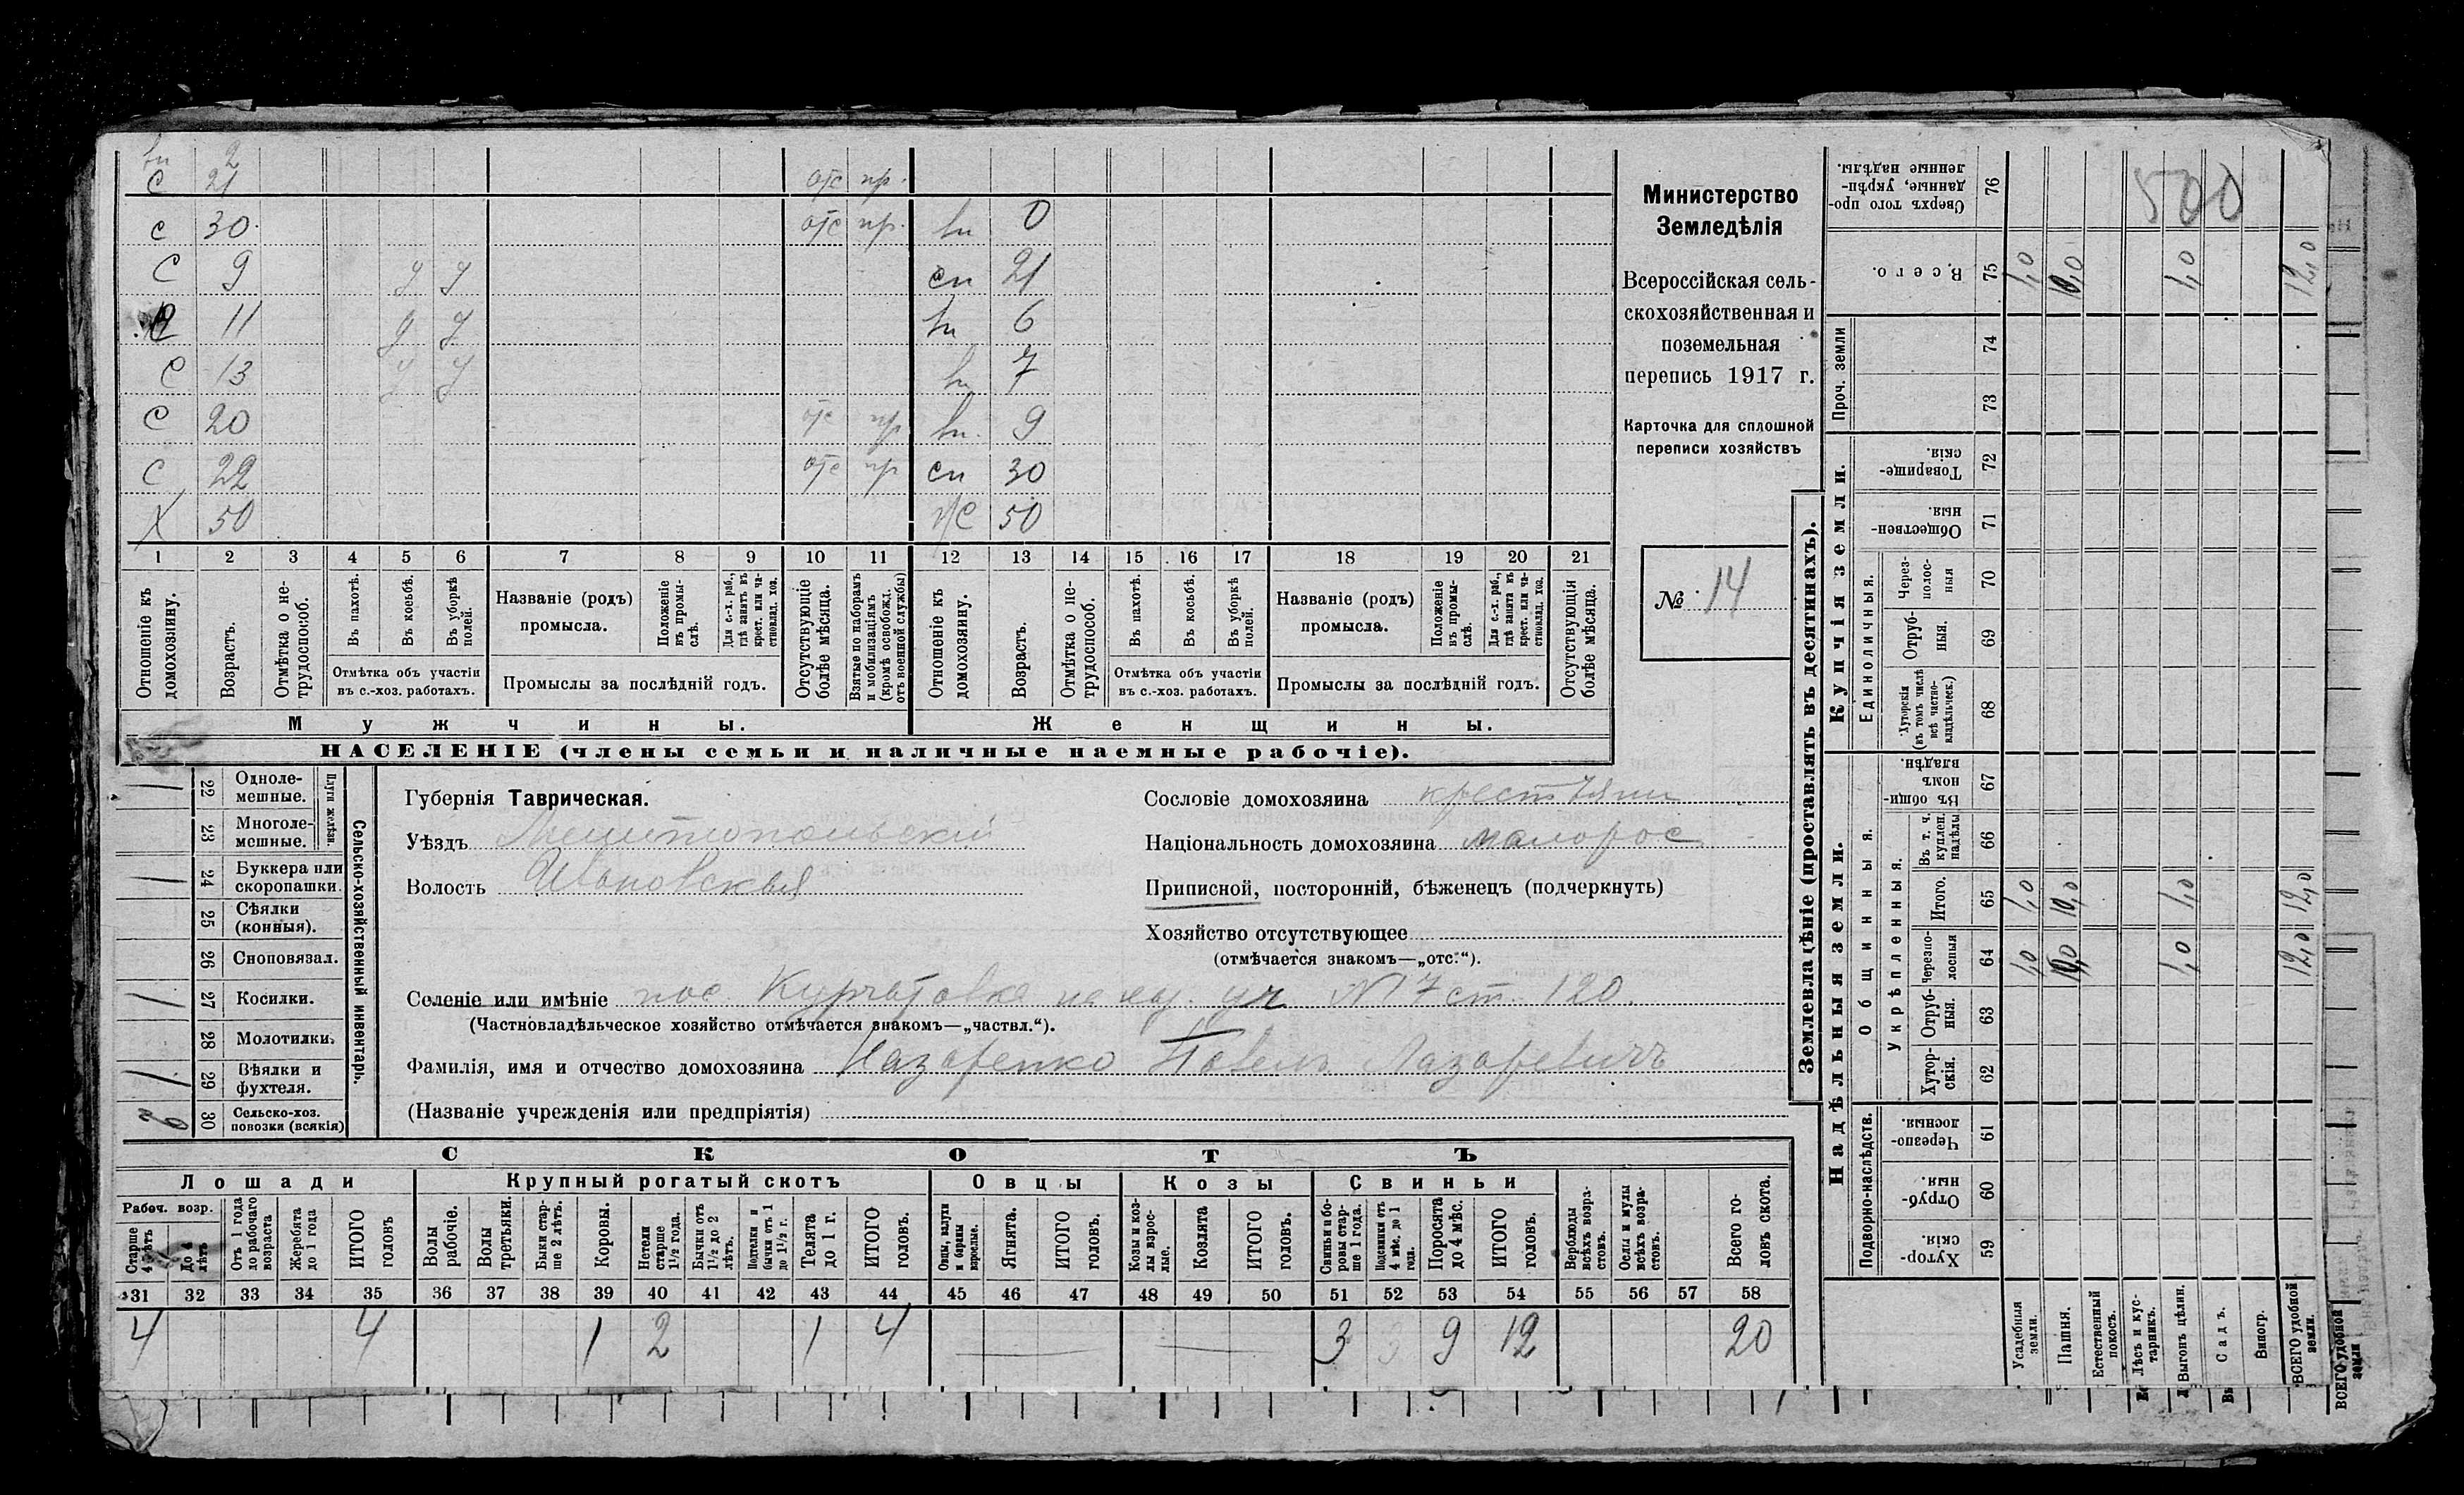 2
С 21 отс пр.
с 30. отс пр. вн 0
С 9 У У сн 21
11 У У вн 6
С 13 У У вн 7
С 20 отс пр вн. 9
С 22 отс пр сн 30
Х 50 50
1 2 3 4 5 6 7 8 9 10 11 12 13 14 15 16 17 18 19 20 21
Отношеніе къ домохозяину.
Возрастъ.
Отмѣтка о нетрудоспособ.
Въ пахотѣ.
Въ косьбѣ.
Въ уборкѣ полей.
Отмѣтка объ участіи
въ с.-хоз. работахъ.
Названіе (родъ)
промысла.
Положеніе въ промыслѣ.
Для с.-х. раб., гдѣ занятъ въ крест. или частновлад. хоз.
Промыслы за послѣдній годъ.
Отсутствующіе болѣе мѣсяца.
Взятые по наборамъ и мобилизаціямъ (кромѣ освобожд. отъ военной службы)
Отношеніе къ домохозяину.
Возрастъ.
Отмѣтка о нетрудоспособ.
Въ пахотѣ.
Въ косьбѣ.
Въ уборкѣ полей.
Отмѣтка объ участіи
въ с.-хоз. работахъ.
Названіе (родъ)
промысла.
Положеніе въ промыслѣ.
Для с.-х. раб., гдѣ занята въ крест. или частновлад. хоз.
Промыслы за послѣдній годъ.
Отсутствующія болѣе мѣсяца.
Мужчины. Женщины.
НАСЕЛЕНІЕ (члены семьи и наличные наемные рабочіе).
Министерство
Земледѣлія
Всероссійская сель-
скохозяйственная и
поземельная
перепись 1917 г.
Карточка для сплошной
переписи хозяйствъ
№ 14
Сельско-хозяйственный инвентарь.
Плуги желѣзн.
1 22 Одноле-
мешные.
23 Многоле-
мешные.
1 24 Буккера или
скоропашки.
25 Сѣялки
(конныя).
26 Сноповязал.
1 27 Косилки.
28 Молотилки.
1 29 Вѣялки и
фухтеля.
2 30 Сельско-хоз.
повозки (всякія)
Губернія Таврическая.
Уѣздъ Мелитопольскій
Волость Ивановская
Сословіе домохозяина крестьянин
Національность домохозяина малорос
Приписной, посторонній, бѣженецъ (подчеркнуть)
Хозяйство отсутствующее
(отмѣчается знакомъ—„отс.“).
Селеніе или имѣніе пос Курчатовка уч № 7 ст. 120.
(Частновладѣльческое хозяйство отмѣчается знакомъ—„частвл.“).
Фамилія, имя и отчество домохозяина Назаренко Павелъ Лазаревичъ
(Названіе учрежденія или предпріятія)
СКОТЪ
Лошади Крупный рогатый скотъ Овцы Козы Свиньи
Рабоч. возр.
Старше 4 лѣтъ
До 4 лѣтъ
Отъ 1 года до рабочаго возраста
Жеребята до 1 года
ИТОГО головъ
Волы рабочіе.
Волы третьяки.
Быки старше 2 лѣтъ.
Коровы.
Нетели старше 1½ года.
Бычки отъ 1½ до 2 лѣтъ.
Подтелки и бычки отъ 1 до 1½ г.
Телята до 1 г.
ИТОГО головъ.
Овцы, валухи и бараны взрослые.
Ягнята.
ИТОГО головъ.
Козы и козлы взрослые.
Козлята
ИТОГО головъ.
Свиньи и боровы старше 1 года.
Подсвинки отъ 4 мѣс. до 1 года.
Поросята до 4 мѣс.
ИТОГО головъ.
Верблюды всѣхъ возрастовъ.
Ослы и мулы всѣхъ возрастовъ.
Всего головъ скота.
31 32 33 34 35 36 37 38 39 40 41 42 43 44 45 46 47 48 49 50 51 52 53 54 55 56 57 58
4 4 1 2 1 4 — — 3 3 9 12 20
Землевладѣніе (проставлять въ десятинахъ).
Надѣльныя земли. Купчія земли. Проч. земли
Подворно-наслѣдств.
Общинныя.
Укрѣпленныя.
Единоличныя.
Сверхъ того проданные, укрѣпленные надѣлы. 76 500
Всего. 75 1,0 10,0 1,0 12,0
74
73
Товарищескія. 72
Общественныя. 71
Черезполосныя 70
Отрубныя. 69
Хуторскія (въ томъ числѣ всѣ частновладѣльческ.) 68
Въ общинномъ владѣн. 67
Въ т. ч. куплен. надѣлы 66
Итого. 65 1,0 10,0 1,0 12,0
Черезполосныя 64 1,0 10,0 1,0 12,0
Отрубныя. 63
Хуторскія. 62
Черезполосныя. 61
Отрубныя. 60
Хуторскія. 59
Усадебныя земли.
Пашня.
Естественный покосъ.
Лѣсъ и кустарникъ.
Выгонъ цѣлин.
Садъ.
Виногр.
ВСЕГО удобной земли.
ВСЕГО удобной земли